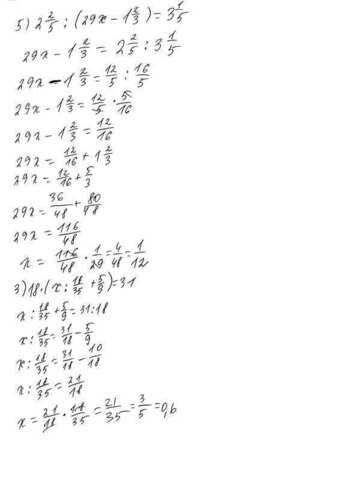 5) 2 2/5 : (29x - 1 2/3) = 3 1/5
29x - 1 2/3 = 2 2/5 : 3 1/5
29x - 1 2/3 = 12/5 : 16/5
29x - 1 2/3 = 12/5 · 5/16
29x - 1 2/3 = 12/16
29x = 12/16 + 1 2/3
29x = 12/16 + 5/3
29x = 36/48 + 80/48
29x = 116/48
x = 116/48 · 1/29 = 4/48 = 1/12
3) 18 · (x : 18/35 + 5/9) = 31
x : 18/35 + 5/9 = 31 : 18
x : 18/35 = 31/18 - 5/9
x : 18/35 = 31/18 - 10/18
x : 18/35 = 21/18
x = 21/18 · 18/35 = 21/35 = 3/5 = 0,6